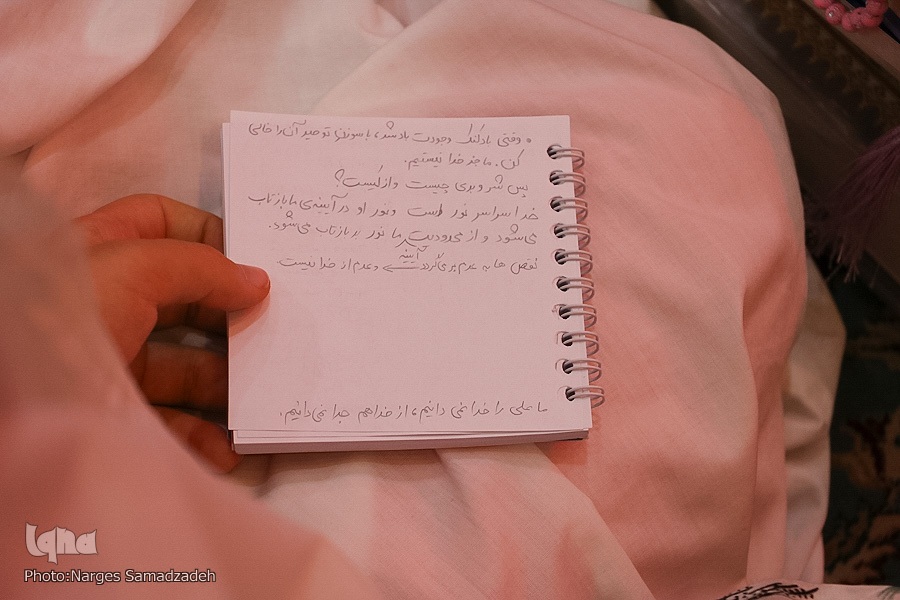 • وقتی بادکنک وجودت باد شد، با سوزنِ توحید آن را خالی
کن. ما جز خدا نیستیم.
پس شر و بدی چیست و از کیست؟
خدا سراسر نور است و نور او در آیینه‌ی ما بازتاب
می‌شود و از محدودیت ما نور بازتاب می‌شود.
آیینه
نقص ها به عدم بر می‌گردد و عدم از خدا نیست.
ما علی را خدا نمی دانیم، از خدا هم جدا نمی‌دانیم.
Iqna
Photo:Narges Samadzadeh